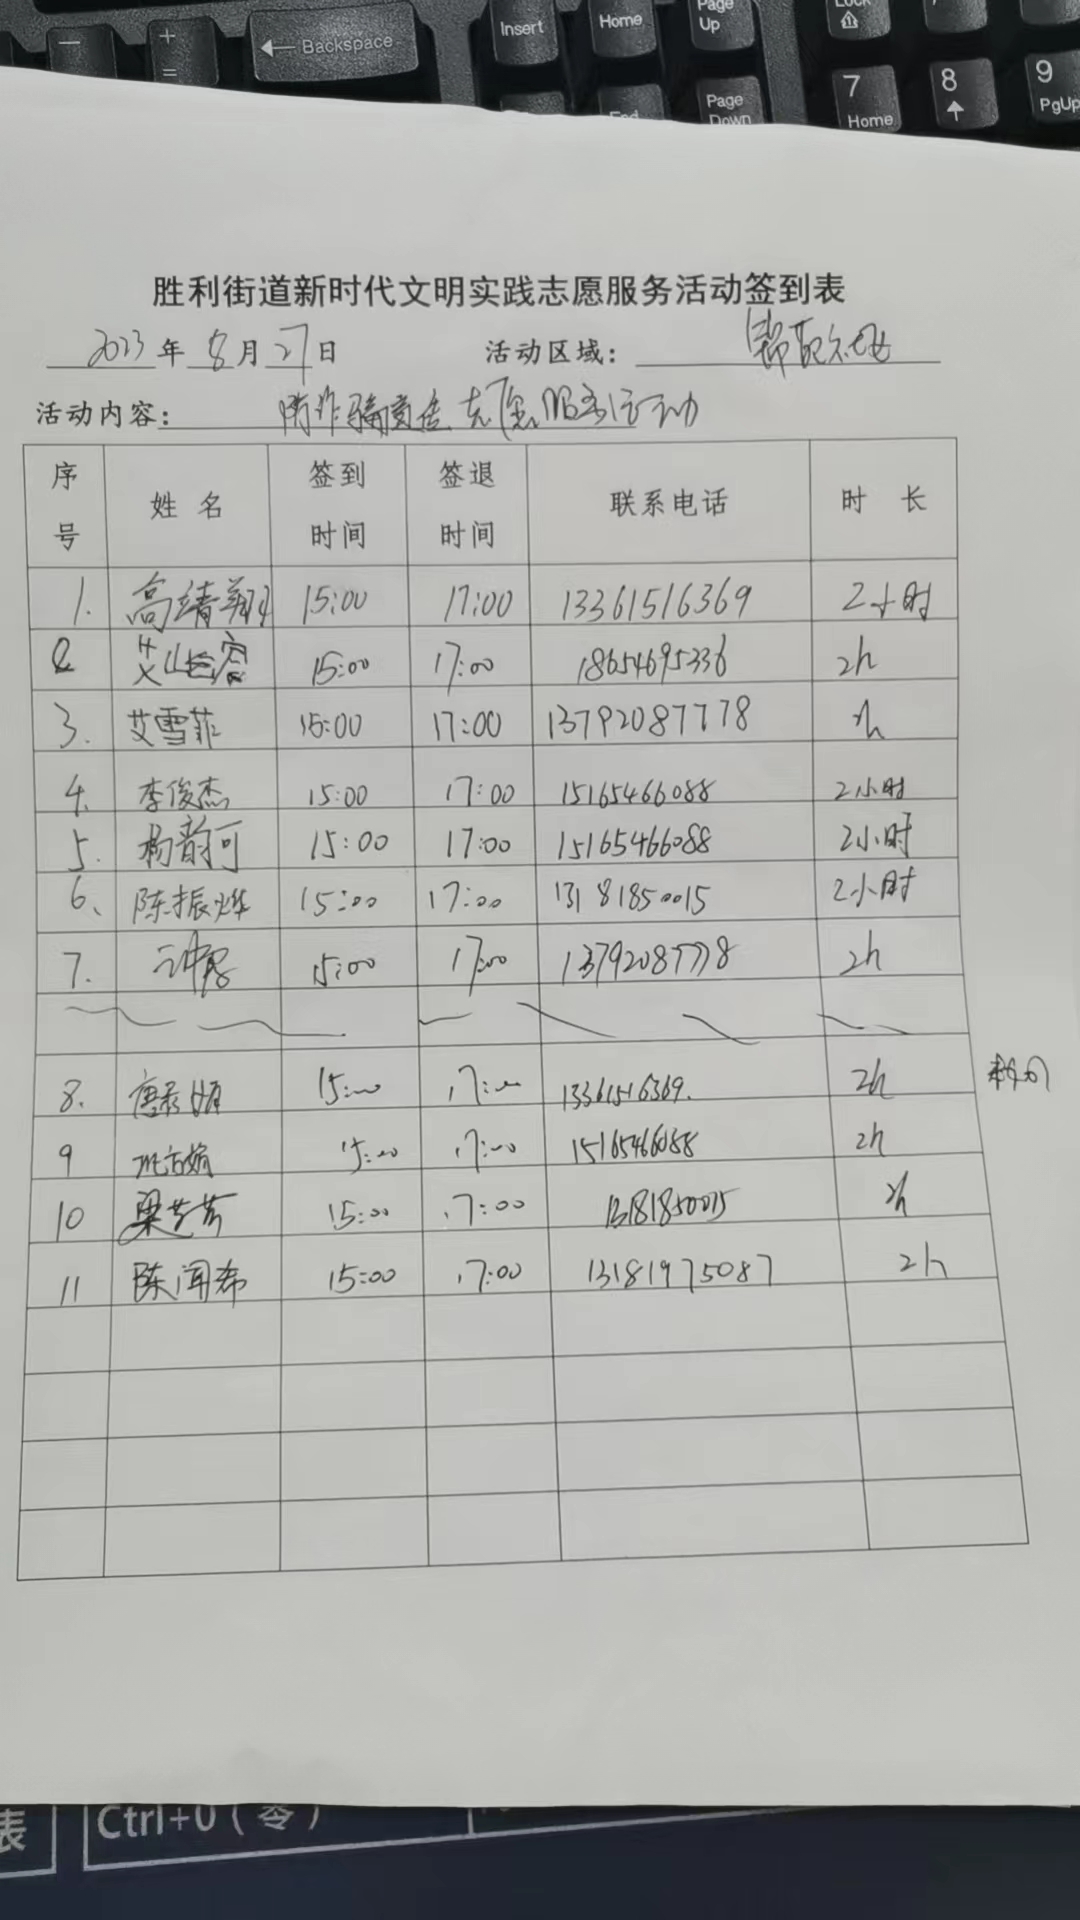 Insert
Home
Page Up
Lock
Backspace
End
Page Down
7 Home
8
9 PgUp
胜利街道新时代文明实践志愿服务活动签到表
2023年8月27日 活动区域:
活动内容: 防诈骗宣传志愿服务活动
序号 姓名 签到时间 签退时间 联系电话 时长
1. 高靖翔 15:00 17:00 13361516369 2小时
2 艾 15:00 17:00 18654695336 2h
3. 艾雪菲 15:00 17:00 13792087778 2h
4. 李俊杰 15:00 17:00 15165466088 2小时
5. 杨韵可 15:00 17:00 15165466088 2小时
6、 陈振烨 15:00 17:00 13181850015 2小时
7. 15:00 17:00 13792087778 2h
8. 15:00 17:00 13361516369. 2h
9 15:00 17:00 15165466088 2h
10 梁芳芳 15:00 17:00 13181850015 2h
11 陈闻希 15:00 17:00 13181975087 2h
表
Ctrl+0（零）